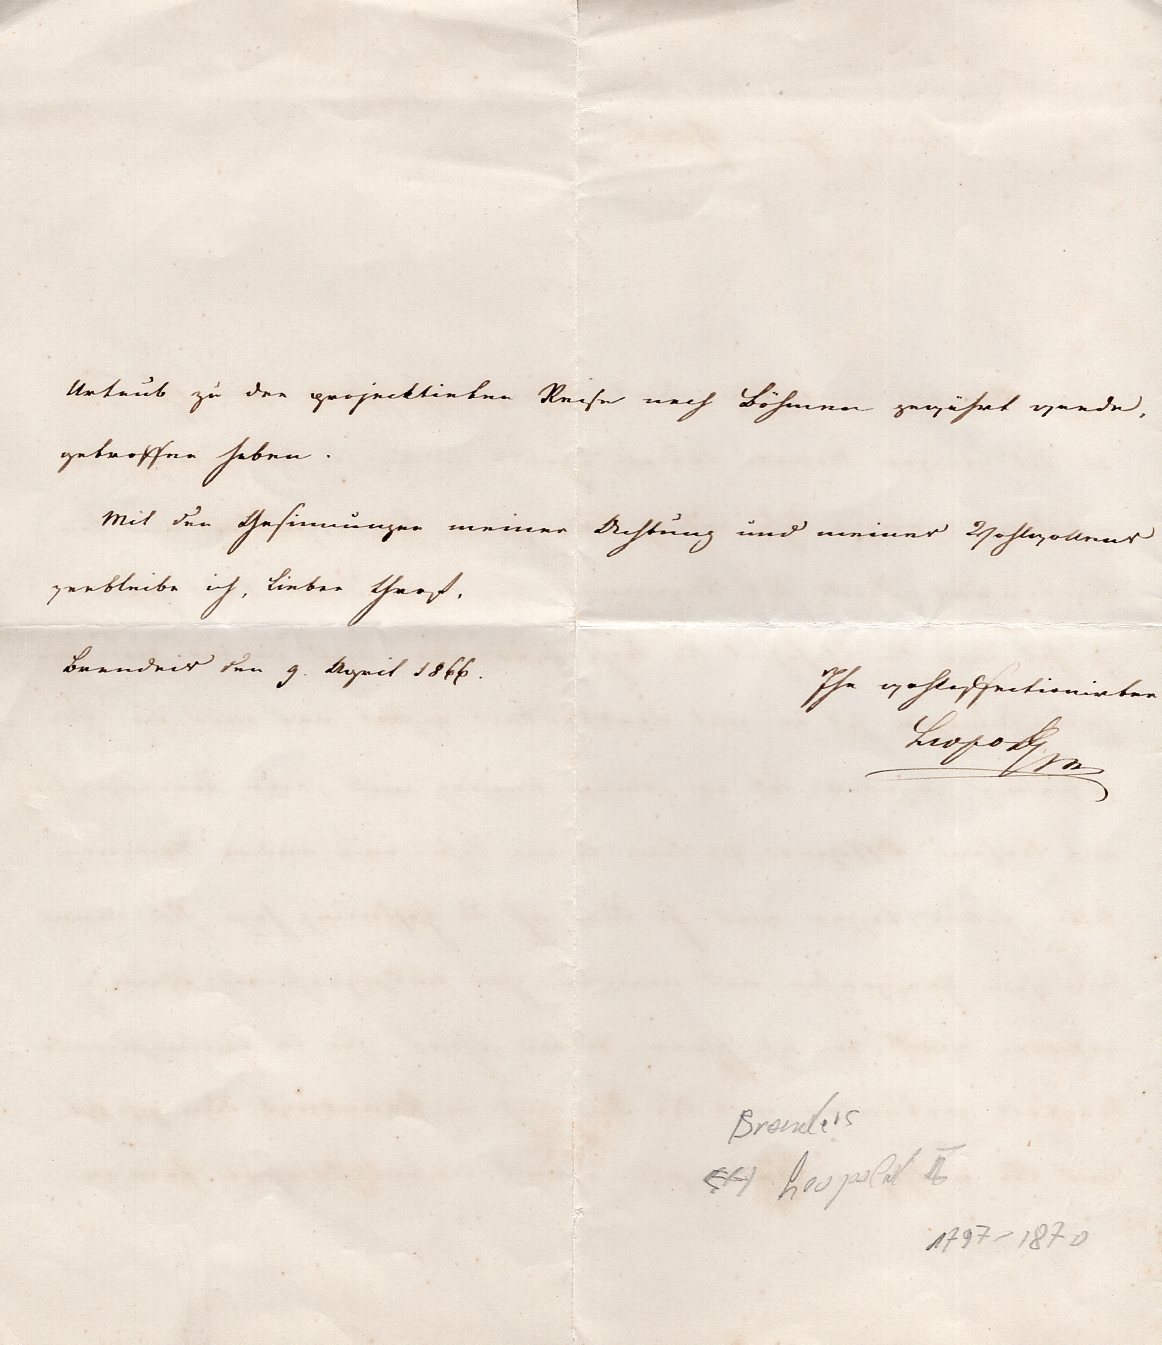 Urlaub zu der projecktirten Reise nach Böhmen gewährt werde,
getroffen haben.
Mit den Gesinnungen meiner Achtung und meines Wohlwollens
verbleibe ich, lieber Graf,
Brandeis den 9. April 1866.
Ihr wohlaffectionirter
Leopold
Brandeis
Leopold II
1797-1870